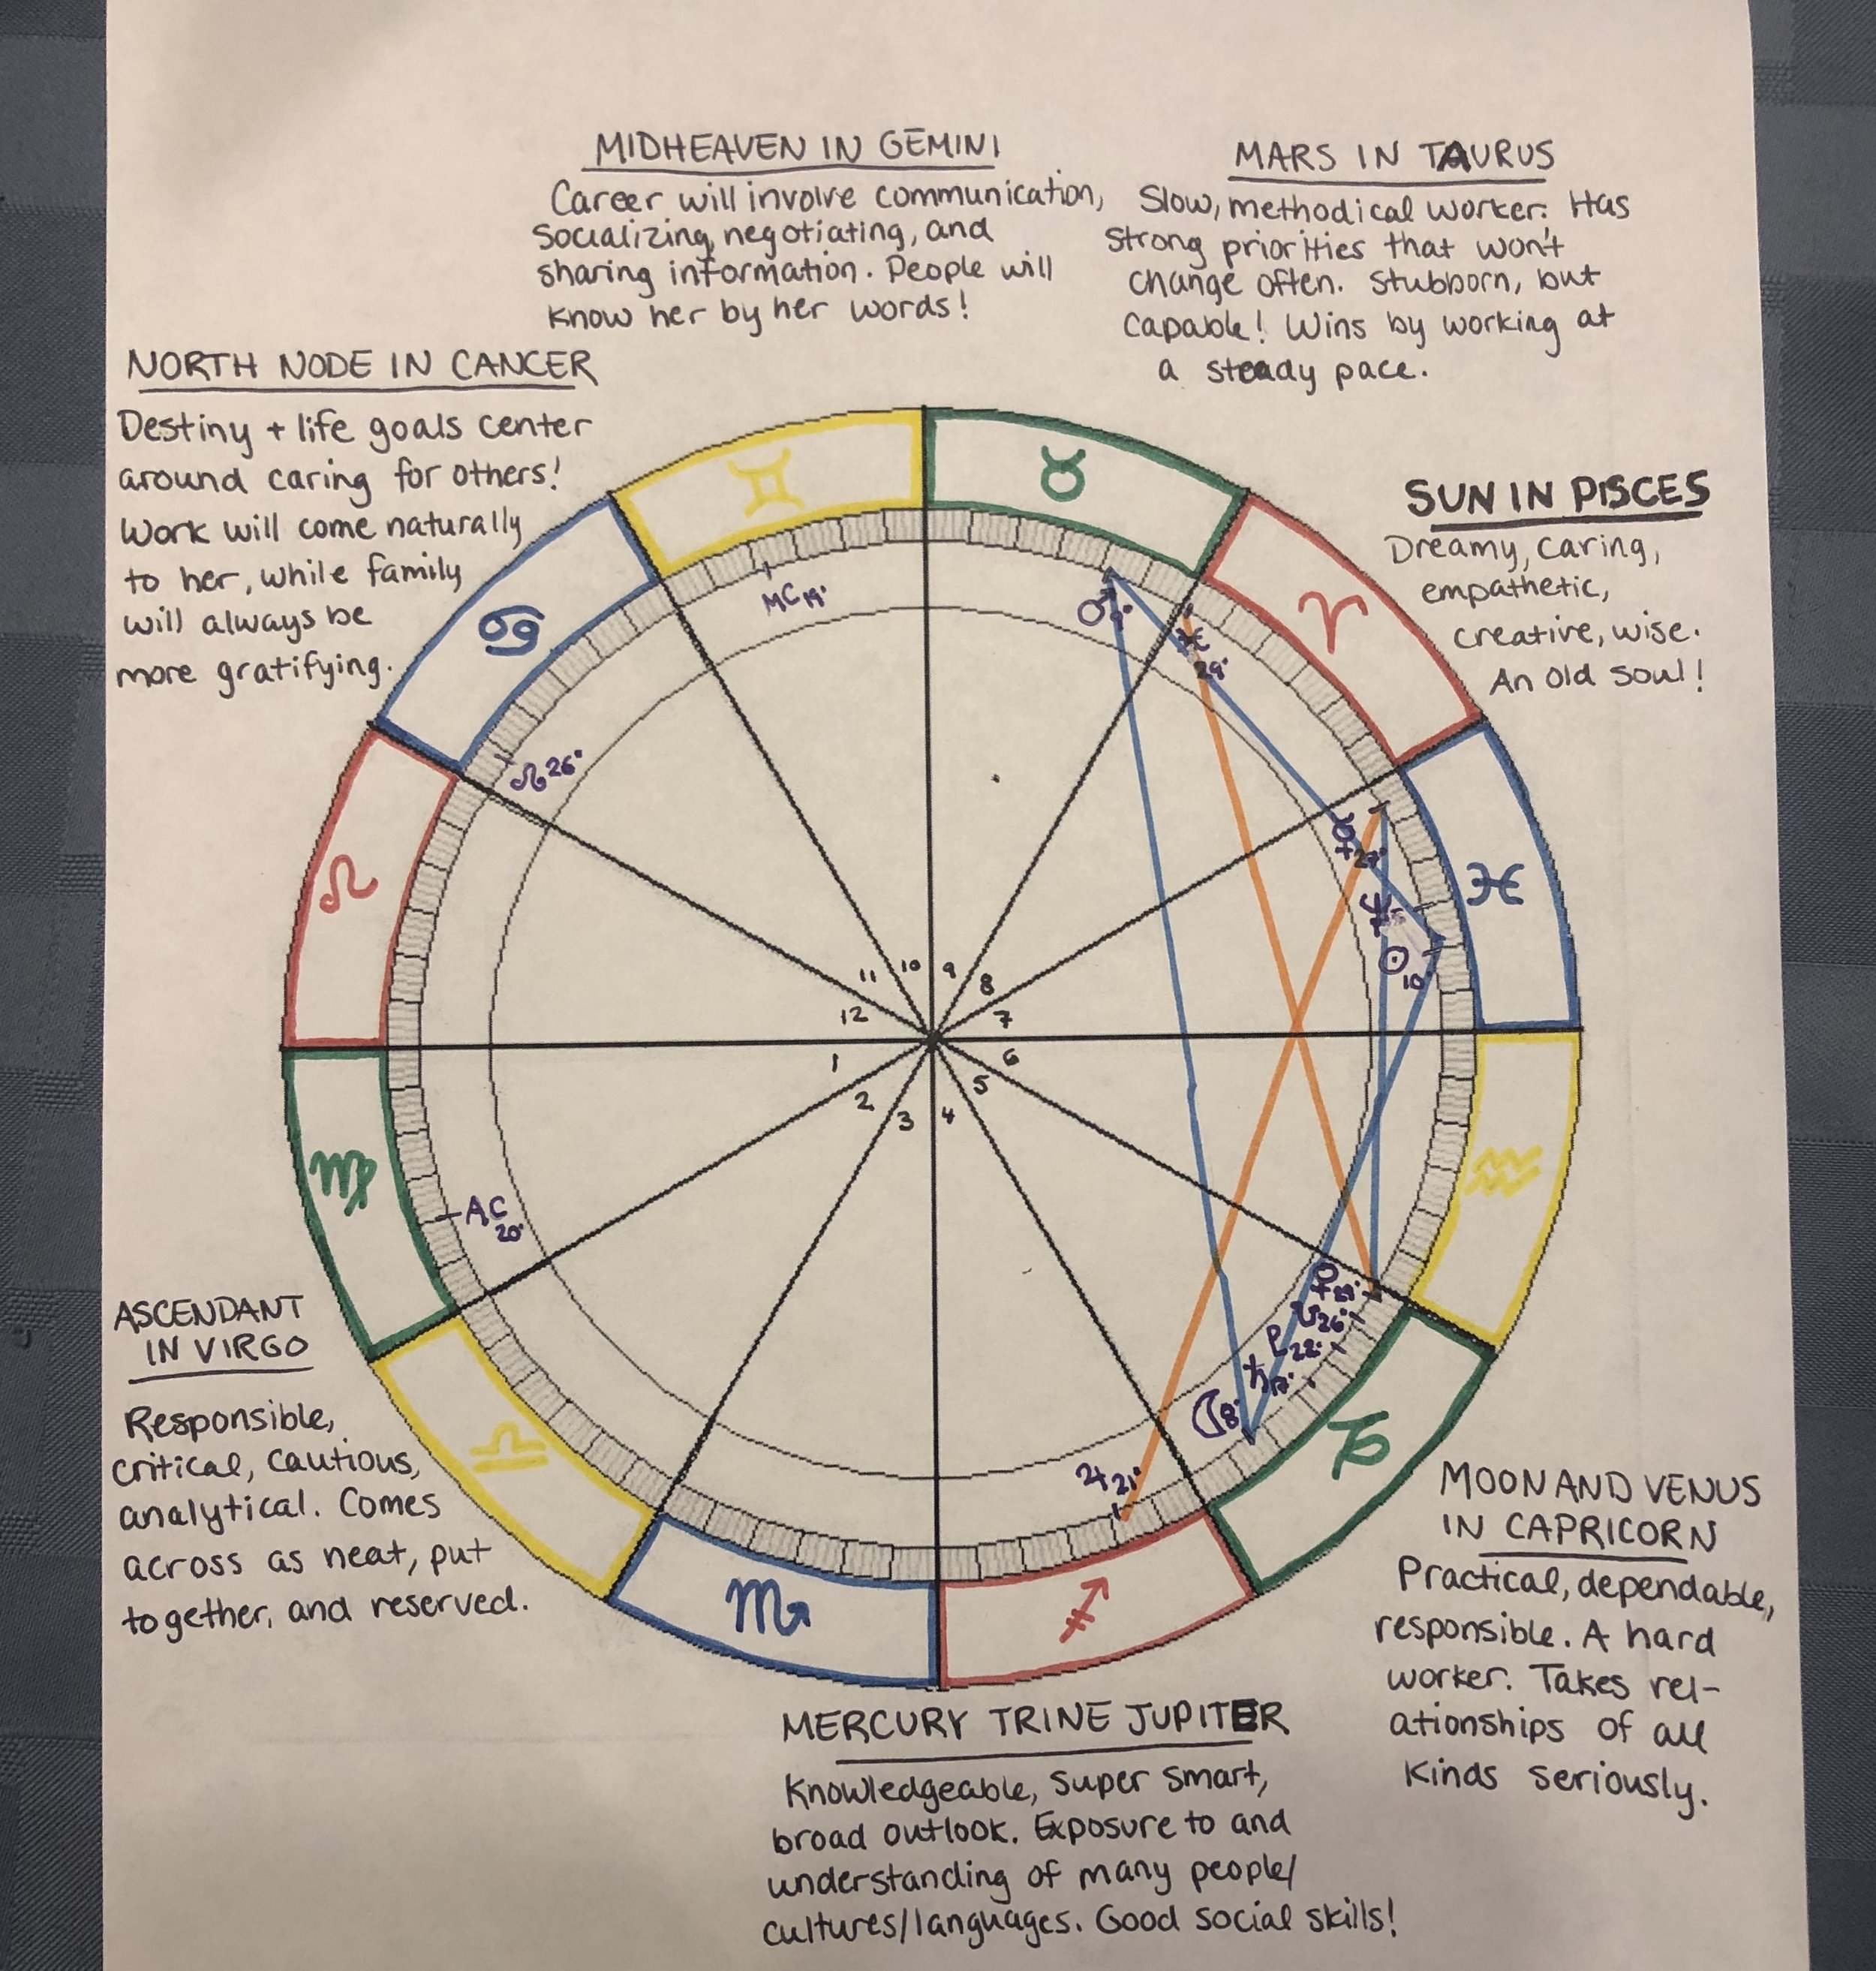 MIDHEAVEN IN GEMINI
Career will involve communication,
socializing, negotiating, and
sharing information. People will
know her by her words!
MARS IN TAURUS
Slow, methodical worker. Has
strong priorities that won't
change often. Stubborn, but
capable! Wins by working at
a steady pace.
NORTH NODE IN CANCER
Destiny + life goals center
around caring for others!
Work will come naturally
to her, while family
will always be
more gratifying.
SUN IN PISCES
Dreamy, caring,
empathetic,
creative, wise.
An Old Soul!
♊
♉
♋
♈
♌
♓
♍
♒
♎
♑
♏
♐
MC 19°
♂ 9°
♓ 29°
☊ 26°
☉ 10°
AC 20°
♀ 29°
26°
P 22°
♄
☾ 8°
♃ 21°
11 10 9 8
12 7
1 6
2 3 4 5
ASCENDANT
IN VIRGO
Responsible,
critical, cautious,
analytical. Comes
across as neat, put
together, and reserved.
MOON AND VENUS
IN CAPRICORN
Practical, dependable,
responsible. A hard
worker. Takes rel-
ationships of all
kinds seriously.
MERCURY TRINE JUPITER
Knowledgeable, super smart,
broad outlook. Exposure to and
understanding of many people/
cultures/languages. Good social skills!